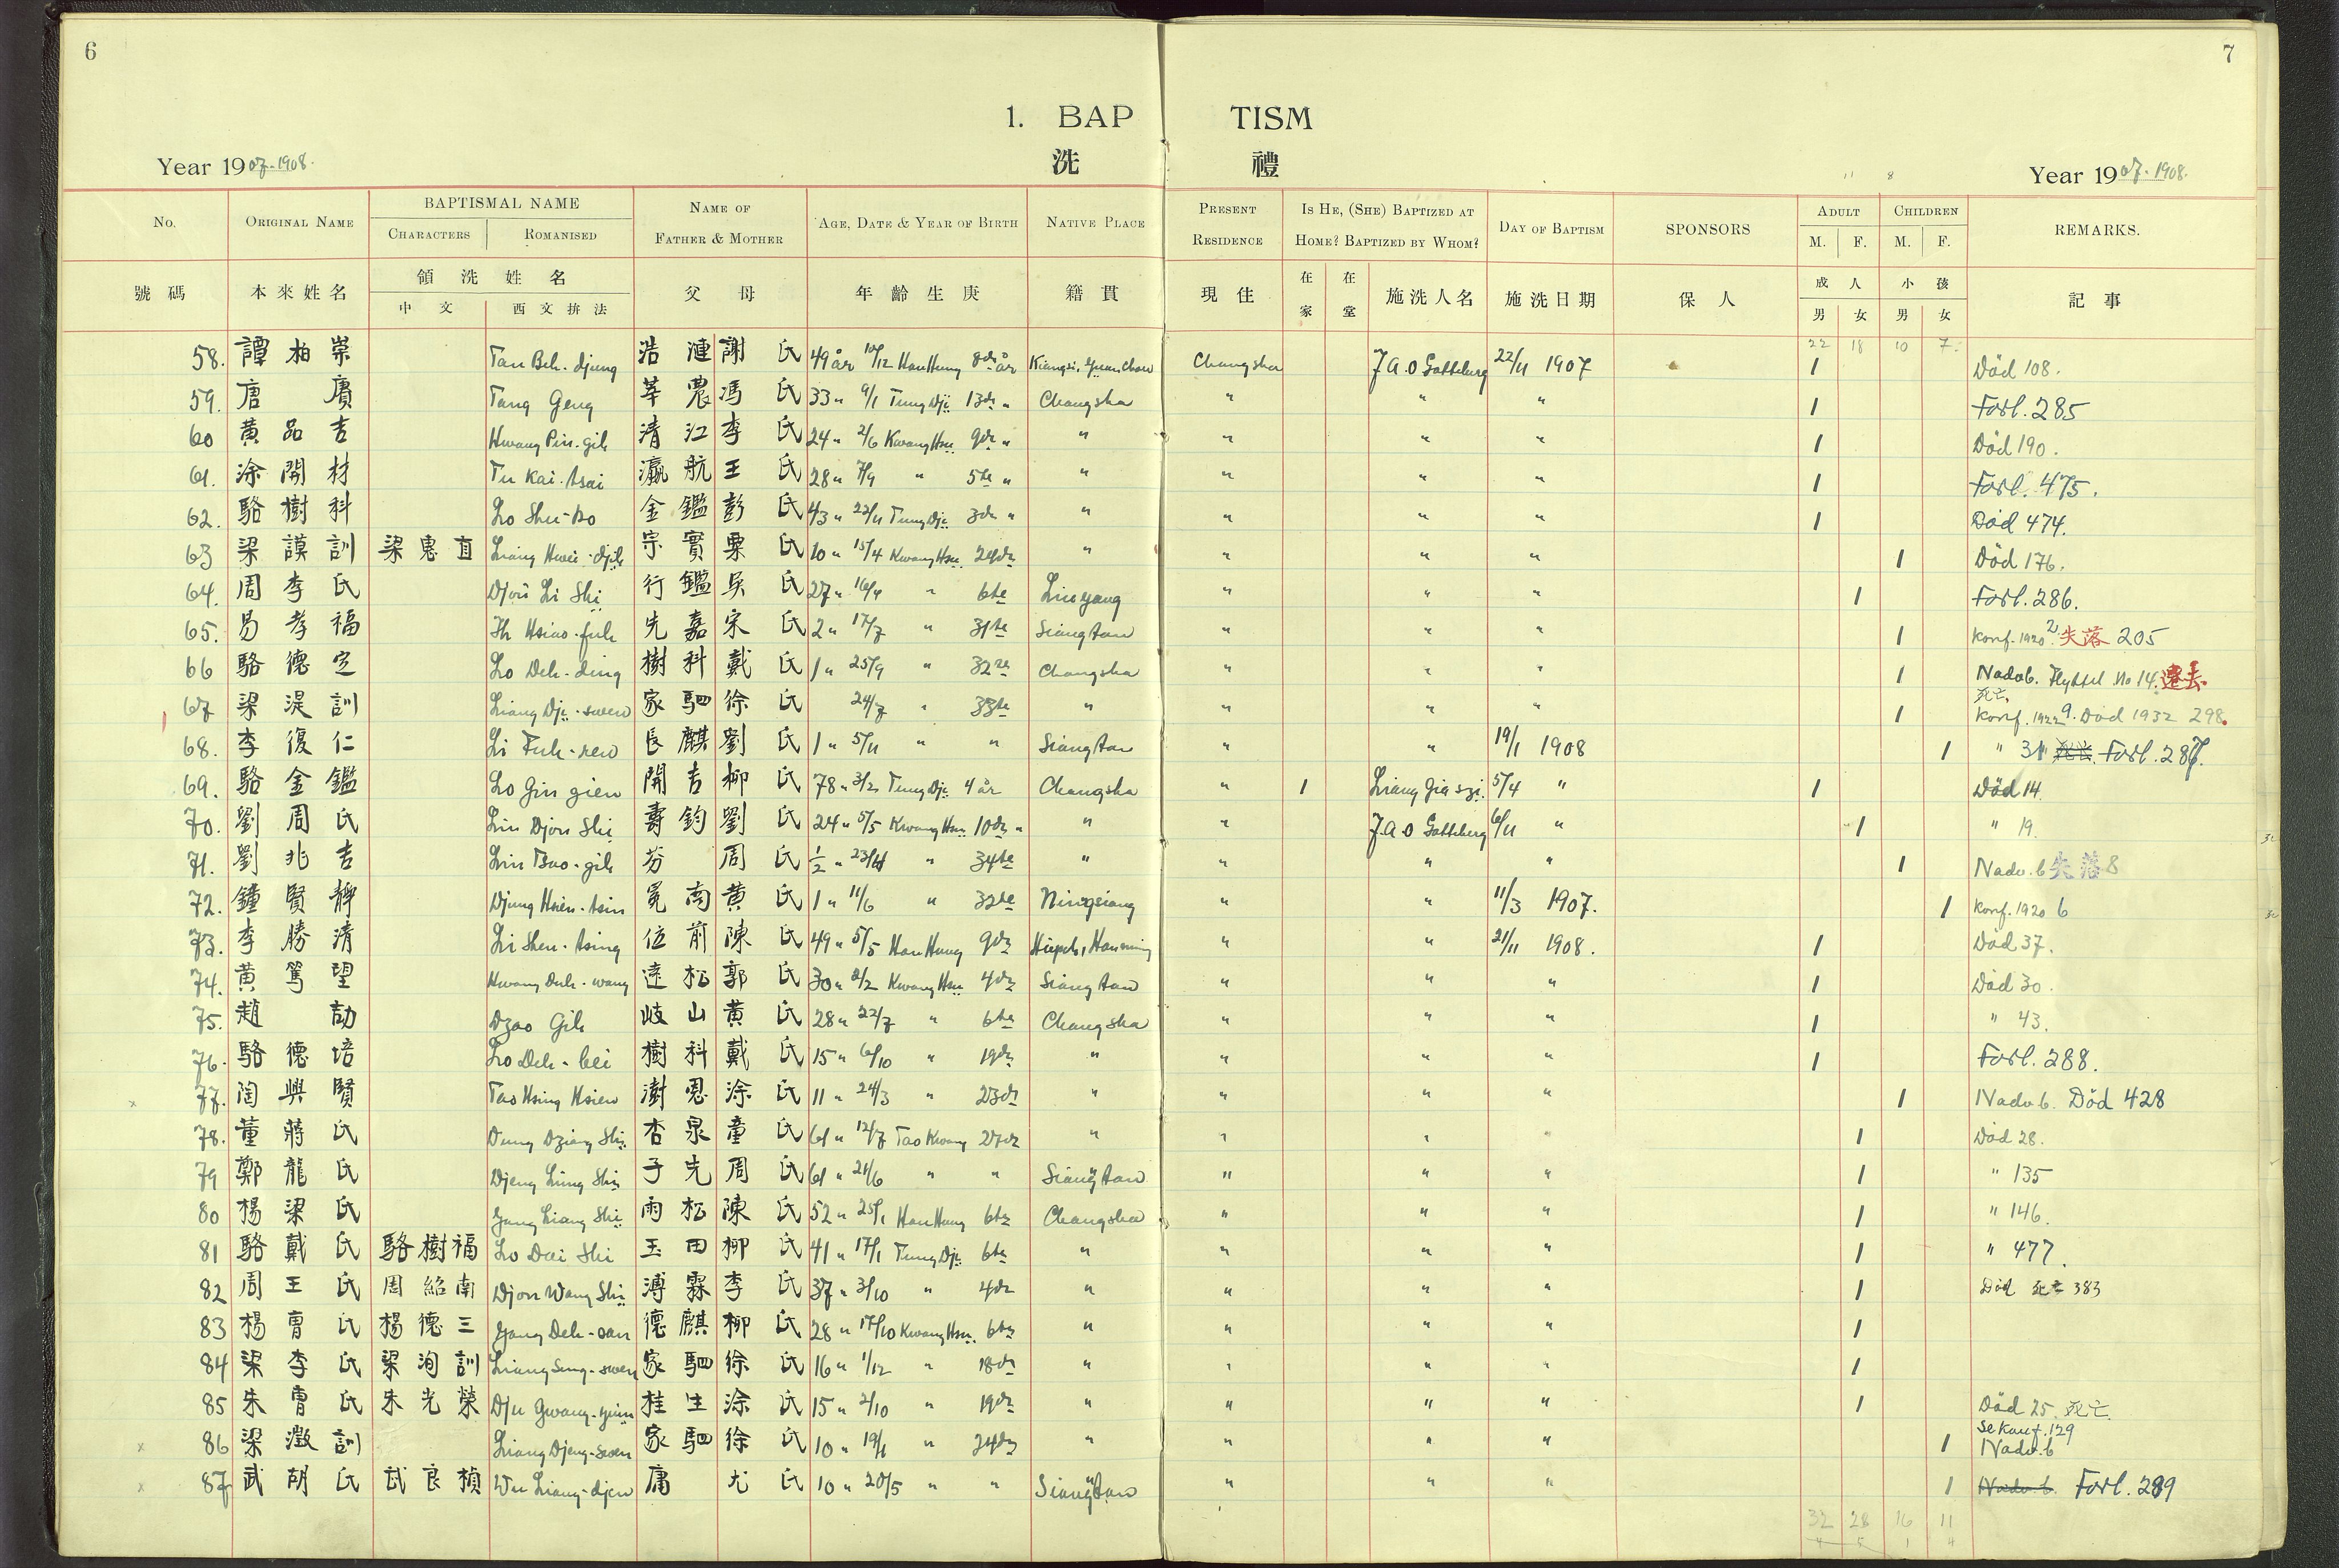 6
7
1. BAP TISM
洗 禮
Year 1907-1908.
Year 1907-1908.
No. ORIGINAL NAME BAPTISMAL NAME CHARACTERS ROMANISED NAME OF FATHER & MOTHER AGE, DATE & YEAR OF BIRTH NATIVE PLACE PRESENT RESIDENCE IS HE, (SHE) BAPTIZED AT HOME? BAPTIZED BY WHOM? DAY OF BAPTISM SPONSORS ADULT M. F. CHILDREN M. F. REMARKS.
號碼 本來姓名 領洗姓名 中文 西文拚法 父母 年齡生庚 籍貫 現住 在家 在堂 施洗人名 施洗日期 保人 成人 男 女 小孩 男 女 記事
22 18 10 7
58. 譚柏崇 Tan Beh-djung 浩漣 謝氏 49 år 10/12 Han Hung 8de år Kiangsi, Yuanchow Changsha J.A.O Gotteberg 22/11 1907 1 Död 108.
59. 唐賡 Tang Geng 莘農 馮氏 33 " 9/1 Tung Dji 13de " Changsha " " " 1 Förl. 285
60 黃品吉 Hwang Pin-gih 清江 李氏 24 " 2/6 Kwang Hsu 9de " " " " " 1 Död 190.
61. 涂開材 Tu Kai-tsai 瀛航 王氏 28 " 7/9 " 5te " " " " " 1 Förl. 475.
62. 駱樹科 Lo Shu-ko 金鑑 彭氏 43 " 22/11 Tung Dji 3de " " " " " 1 Död 474.
63 梁謨訓 梁惠直 Liang Hwei-djih 宗實 粟氏 10 " 15/4 Kwang Hsu 24de " " " " 1 Död 176.
64. 周李氏 Djou Li Shi 行鑑 吳氏 27 " 16/4 " 6te Liuyang " " " 1 Förl. 286.
65. 易孝福 Ih Hsiao-fuh 先嘉 宋氏 2 " 17/7 " 31te Siangtan " " " 1 Konf. 1920 2 失落 205
66 駱德定 Lo Deh-ding 樹科 戴氏 1 " 25/9 " 32te Changsha " " " 1 Nadvb. Flyttet No 14. 遷去
67 梁湜訓 Liang Dji-swen 家駟 徐氏 24/7 " 33te " " " " 1 死亡 Konf. 1922 9. Död 1932 298.
68. 李復仁 Li Fuh-ren 長麒 劉氏 1 " 5/11 " " Siangtan " " 19/1 1908 1 " 31 Förl. 287.
69. 駱金鑑 Lo Gin gien 開吉 柳氏 78 " 3/2 Tung Dji 4 år Changsha " 1 Liang Gia szi. 5/4 " 1 Död 14.
70. 劉周氏 Liu Djou Shi 壽鈞 劉氏 24 " 5/5 Kwang Hsu 10de " " " J.A.O Gotteberg 6/11 " 1 " 19.
71. 劉兆吉 Liu Tsao-gih 芬 周氏 1/2 " 23/4 " 34te " " " " 1 Nadv.b 失落 8
72. 鍾賢靜 Djung Hsien-tsin 冕南 黃氏 1 " 11/6 " 32te Ningsiang " " 11/3 1907. 1 Konf. 1920 6
73. 李勝清 Li Shen-tsing 位前 陳氏 49 " 5/5 Han Hung 9de " " 21/11 1908. 1 Död 37.
74. 黃篤望 Hwang Duh-wang 達松 郭氏 30 " 2/2 Kwang Hsu 4de Siangtan " " " 1 Död 30.
75. 趙劼 Dzao Gih 岐山 黃氏 28 " 22/7 " 6te Changsha " " " 1 " 43.
76. 駱德培 Lo Deh-bei 樹科 戴氏 15 " 6/10 " 19de " " " " 1 Förl. 288.
x 77. 陶興賢 Tao Hsing Hsien 澍恩 涂氏 11 " 24/3 " 23de " " " " 1 Nadv b. Död 428
78. 董蔣氏 Dung Dziang Shi 杏泉 童氏 61 " 12/7 Tao Kwang 27de " " " " 1 Död 28.
79 鄭龍氏 Djeng Lung Shi 子先 周氏 61 " 21/6 " " Siangtan " " " 1 " 135
80 楊梁氏 Yang Liang Shi 雨松 陳氏 52 " 25/1 Han Hung 6te Changsha " " " 1 " 146.
81 駱戴氏 駱樹福 Lo Dai Shi 玉田 柳氏 41 " 17/1 Tung Dji 6te " " " " 1 " 477.
82 周王氏 周紹南 Djou Wang Shi 溥霖 李氏 37 " 3/10 " 4de " " " " 1 Död 死亡 383
83 楊曹氏 楊德三 Yang Deh-san 德麒 柳氏 28 " 17/10 Kwang Hsu 6te " " " " 1
84 梁李氏 梁洵訓 Liang Sung-swen 家駟 徐氏 16 " 1/12 " 18de " " " " 1
85 朱曹氏 朱光榮 Dju Gwang-yuin 桂生 涂氏 15 " 2/10 " 19de " " " " 1 Död 25 死亡
x 86 梁澂訓 Liang Djeng-swen 家駟 徐氏 10 " 19/1 " 24de " " " " 1 Se Konf. 129 Nadv. b
x 87 武胡氏 武良楨 Wu Liang-djen 庸 尤氏 10 " 20/5 " " Siangtan " " " 1 Nadv. b. Förl. 289
32 28 16 11